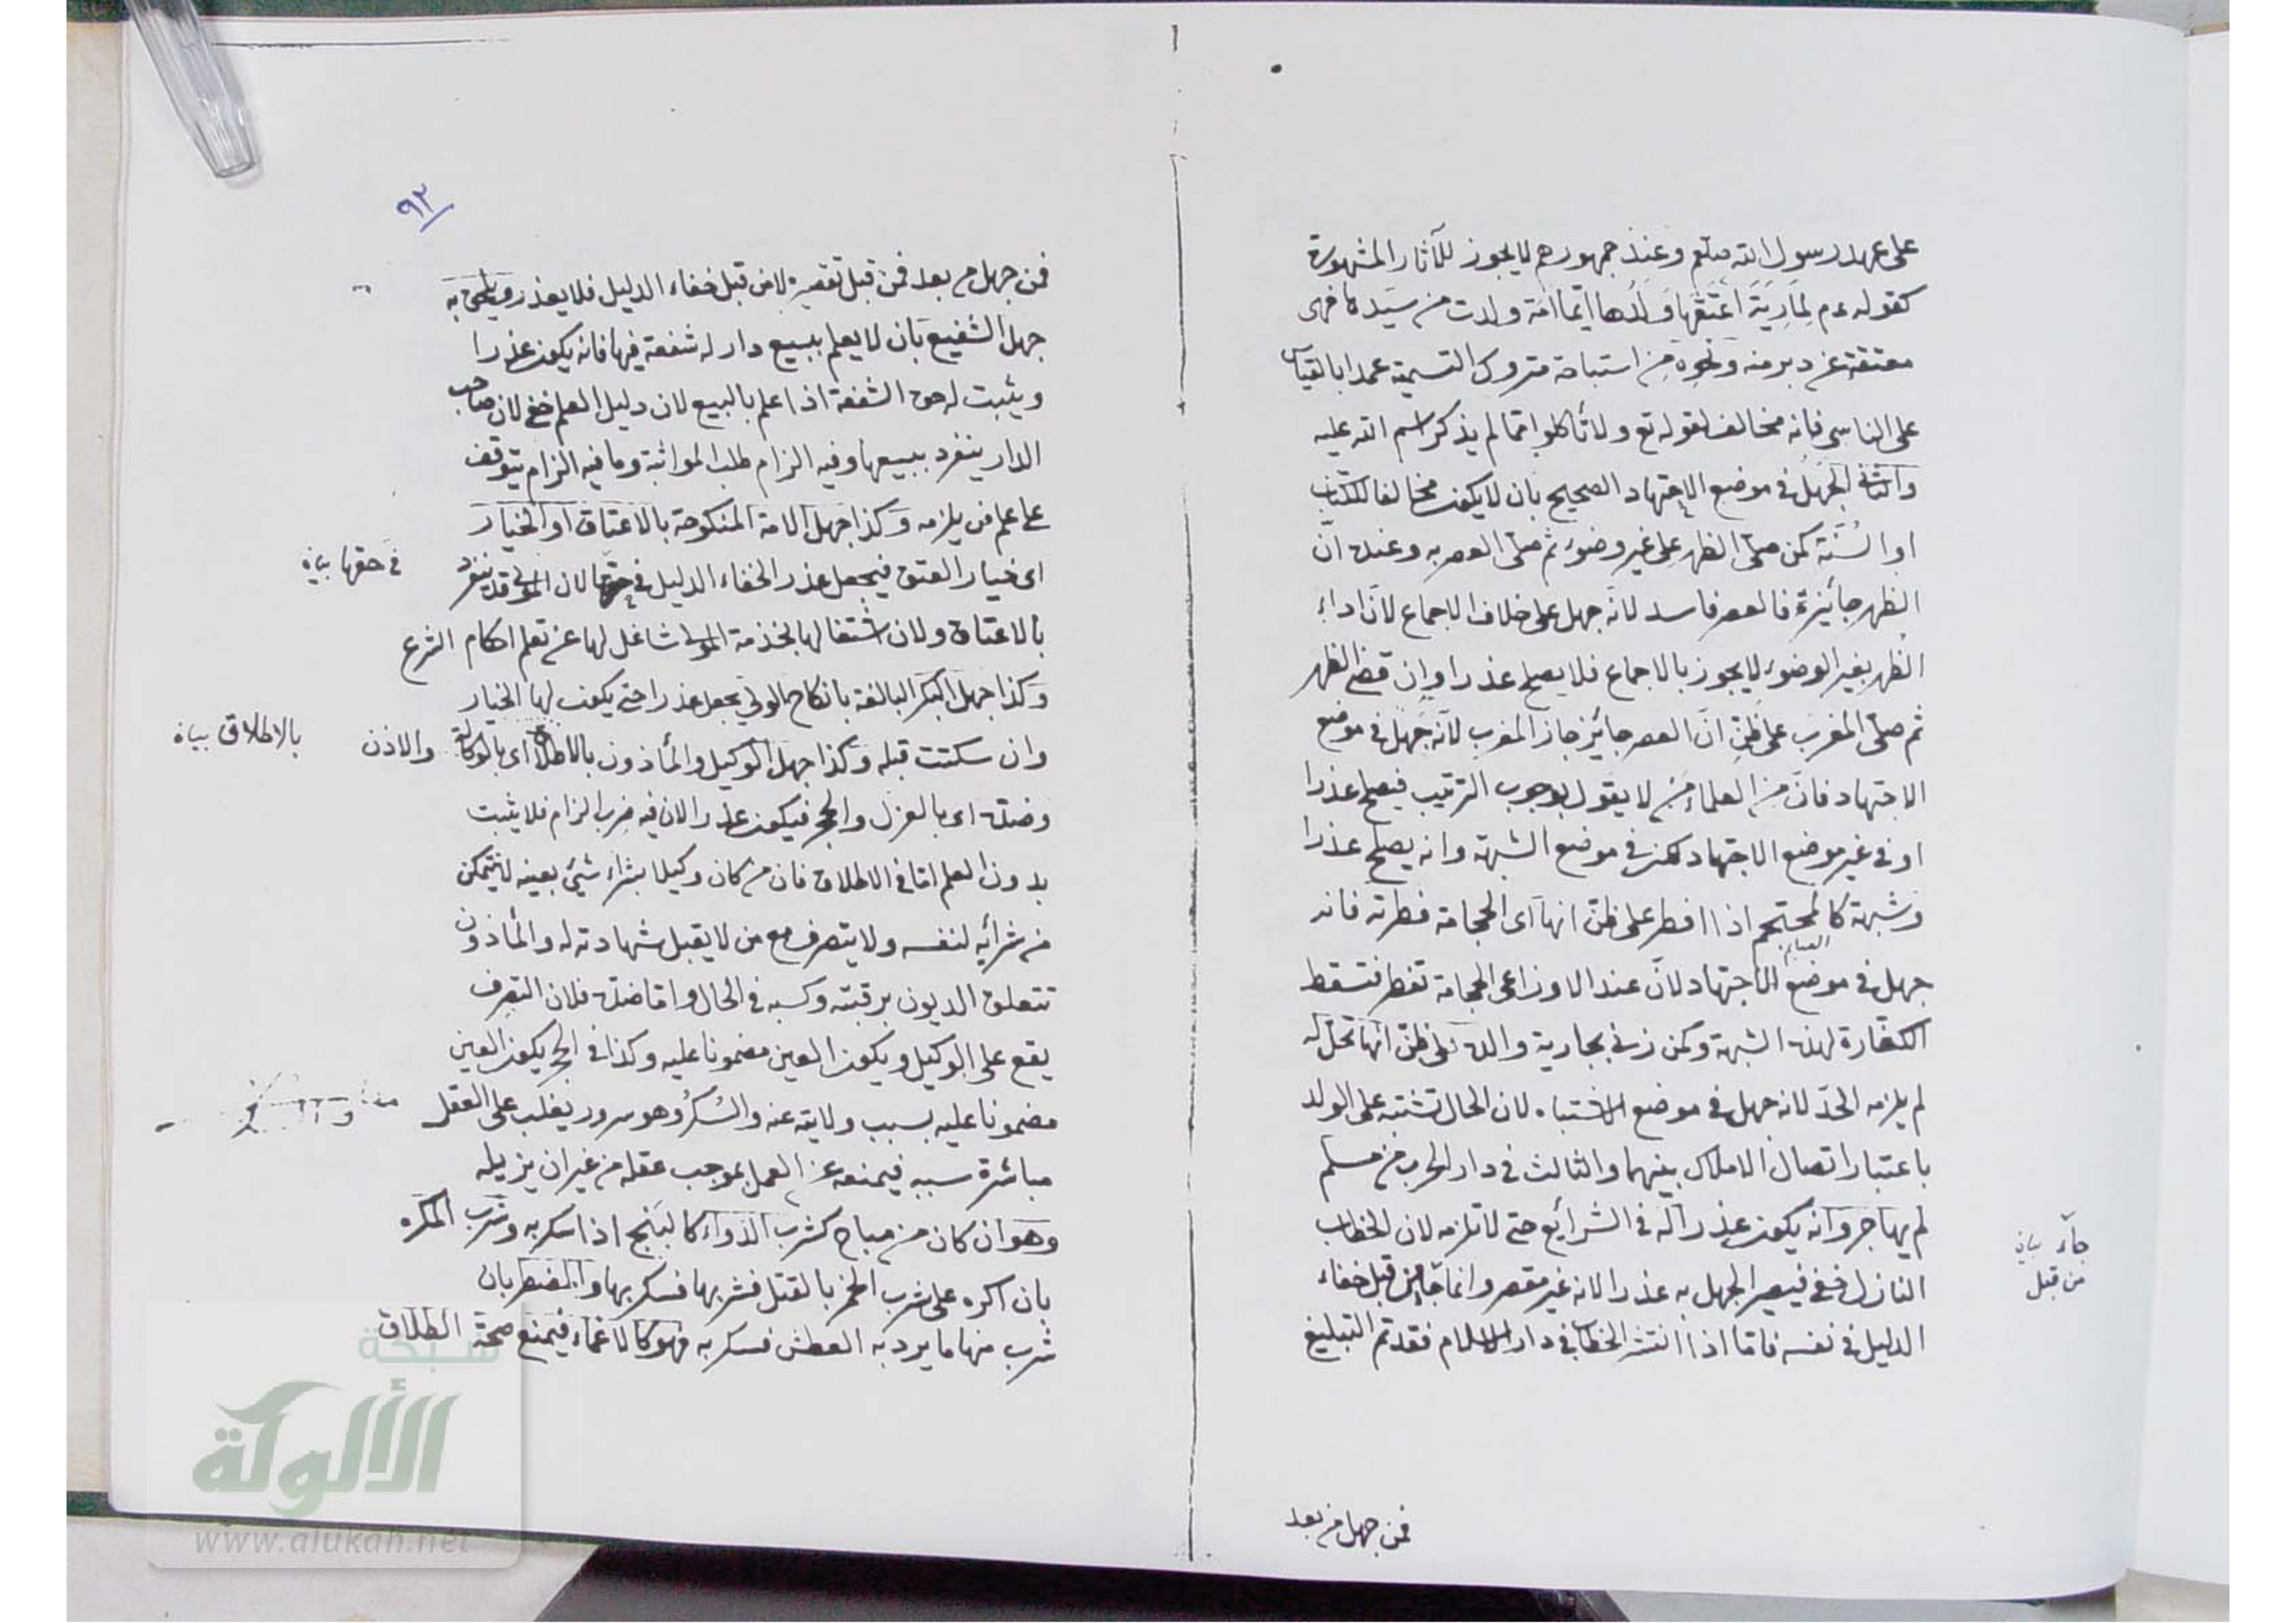 على عهد رسول الله صلعم وعند جمهورهم لا يجوز للآثار المشهورة
كقوله عم لمارية اعتقها ولدها ايما امة ولدت من سيدها فهى
معتقة عن دبر منه ونحوه من استباحة متروك التسمية عمدا بالقياس
على الناسى فانه مخالف لقوله تع ولا تأكلوا مما لم يذكر اسم الله عليه
والثانى الجهل فى موضع الاجتهاد الصحيح بان لا يكون مخالفا للكتاب
او السنة كمن صلى الظهر على غير وضوء ثم صلى العصر به وعنده ان
الظهر جائزة فالعصر فاسد لانه جهل على خلاف الاجماع لان اداء
الظهر بغير الوضوء لا يجوز بالاجماع فلا يصلح عذرا وان قضى الظهر
ثم صلى المغرب على ظن ان العصر جائز جاز المغرب لانه جهل فى موضع
الاجتهاد فان من العلماء من لا يقول بوجوب الترتيب فيصلح عذرا
او فى غير موضع الاجتهاد لكن فى موضع الشبهة وانه يصلح عذرا
وشبهة كالمحتجم اذا افطر على ظن انها اى الحجامة فطرته فانه
جهل فى موضع الاجتهاد لان عند الاوزاعى الحجامة تفطر فتسقط
الكفارة لهذه الشبهة وكمن زنى بجارية والده على ظن انها تحل له
لم يلزمه الحد لانه جهل فى موضع الاشتباه لان الحال تشتبه على الولد
باعتبار اتصال الاملاك بينهما والثالث فى دار الحرب من مسلم
لم يهاجر وانه يكون عذرا له فى الشرائع حتى لا تلزمه لان الخطاب
النازل خفى فيصير الجهل به عذرا لانه غير مقصر وانما جاء من قبل خفاء
الدليل فى نفسه فاما اذا انتشر الخطاب فى دار الاسلام فقد تم التبليغ
جاء بيان
من قبل
فمن جهل من بعد
٩٣
فمن جهل من بعد فمن قبل تقصيره لا من قبل خفاء الدليل فلا يعذر ويلحق به
جهل الشفيع بان لا يعلم ببيع دار له شفعة فيها فانه يكون عذرا
ويثبت له حق الشفعة اذا علم بالبيع لان دليل العلم خفى لان صاحب
الدار ينفرد ببيعها وفيه الزام طلب المواثبة وما فيه الزام يتوقف
على علم من يلزمه وكذا جهل الامة المنكوحة بالاعتاق او الخيار
اى خيار العتق فيجعل عذرا لخفاء الدليل فى حقها لان المولى قد ينفرد
فى حقها بيان
بالاعتاق ولان اشتغالها بخدمة المولى شاغل لها عن تعلم احكام الشرع
وكذا جهل البكر البالغة بانكاح الولي يجعل عذرا حتى يكون لها الخيار
وان سكتت قبله وكذا جهل الوكيل والمأذون بالاطلاق اى بالوكالة والاذن
بالاطلاق بيان
وضده اى بالعزل والحجر فيكون عذرا لان فيه ضرب الزام فلا يثبت
بدون العلم اما فى الاطلاق فان من كان وكيلا بشراء شئ بعينه لا يتمكن
من شرائه لنفسه ولا يتصرف مع من لا يقبل شهادته له والمأذون
تتعلق الديون برقبته وكسبه فى الحال واما ضده فلان التصرف
يقع على الوكيل ويكون العين مضمونا عليه وكذا فى الحجر يكون العين
مضمونا عليه بسبب ولايته عنه والسكر وهو سرور يغلب على العقل
مباشرة سببه فيمنعه عن العمل بموجب عقله من غير ان يزيله
وهو ان كان من مباح كشرب الدواء كالبنج اذا سكر به وشرب المكره
بان اكره على شرب الخمر بالقتل فشربها فسكر بها والمضطر بان
شرب منها ما يرد به العطش فسكر به فهو كالاغماء فيمنع صحة الطلاق
شبكة
الألوكة
www.alukah.net